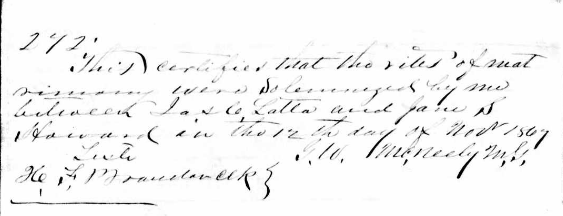 272.
This certifies that the rites of mat
rimony were Solemnized by me
between Jas C. Latta and Jane S
Howard on the 12th day of Nov 1867
Teste J. W. McNeely M.G.
H. F. Brandon Clk